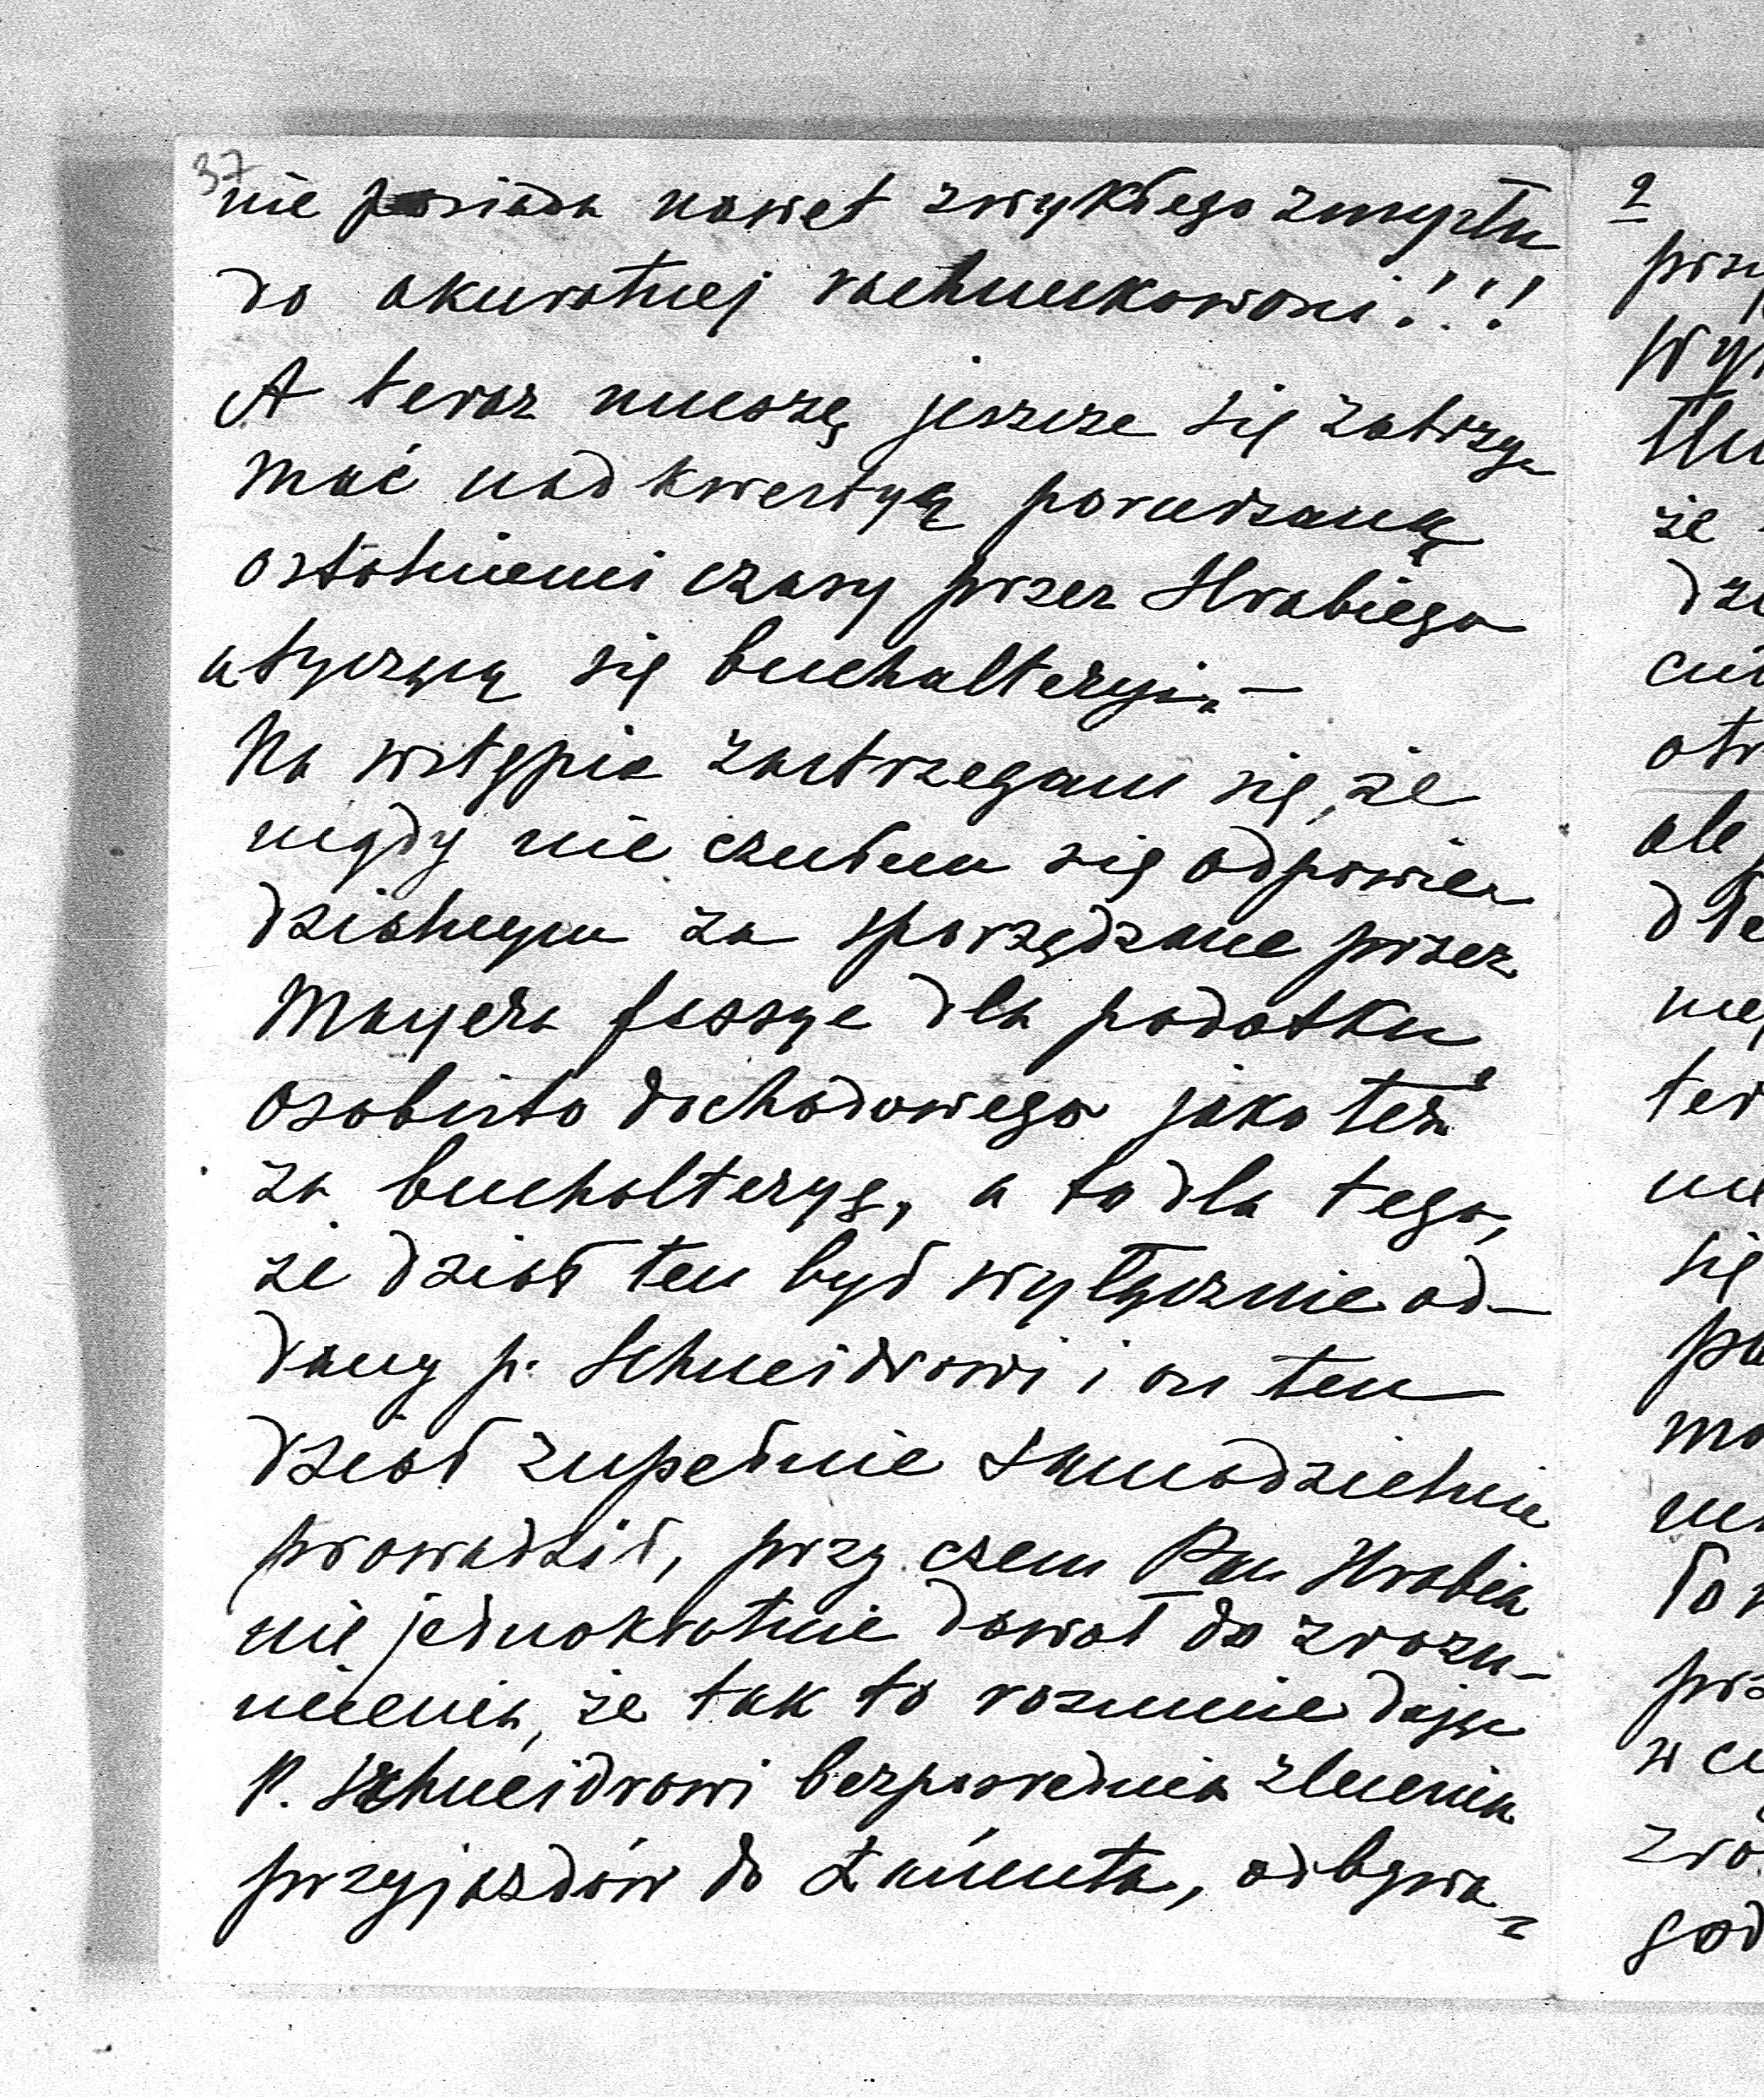 37
nie posiada nawet zwykłego zmysłu
do akuratnej rachunkowosci!!!
A teraz muszę jeszcze się zatrzy-
mać nad kwestyą poruszaną
ostatniemi czasy przez Hrabiego
a tyczącą się buchalteryi. —
Na wstępie zastrzegam się, że
nigdy nie czułem się odpowie-
dzialnym za sporządzane przez
Mayera fassye dla podatku
osobisto dochodowego jako też
za buchalteryę, a to dla tego,
że dział ten był wyłącznie od-
dany p. Schneidrowi i on ten
dział zupełnie samodzielnie
prowadził, przy czem Pan Hrabia
nie jednokrotnie dawał do zrozu-
mienia, że tak to rozumie dając
P. Schneidrowi bezposrednia zlecenia
przyjazdów do Łańcuta, odbywa-
2
przy
wy
tłu
że
dze
otr
ale
ter
się
prz
w ce
zro
god